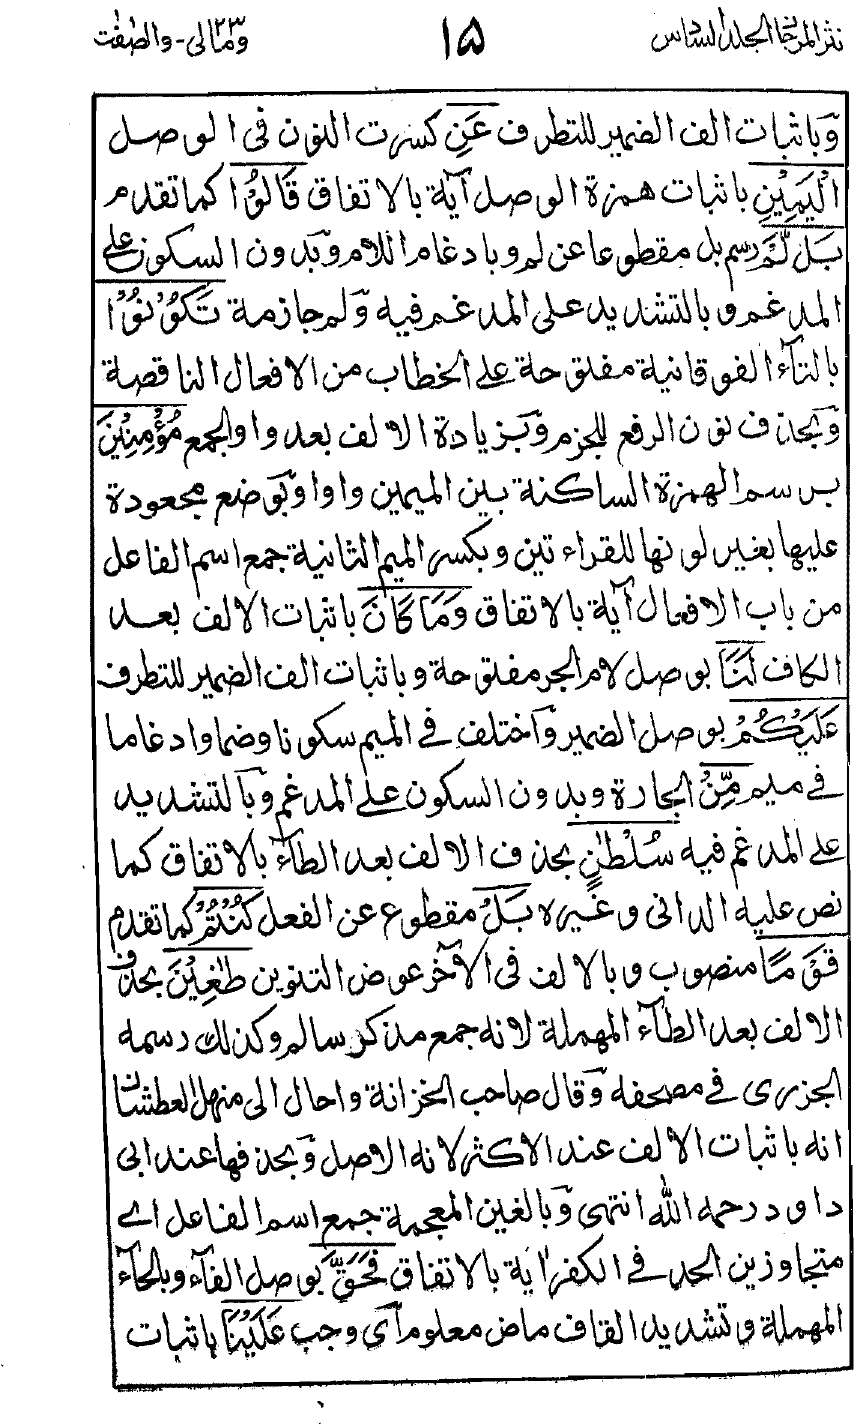 نثر المرجان المجلد السادس ١٥ ومالی ٢٣ - والصّٰفّٰت
وَباثبات الف الضمير للتطرف عَنِ كسرت النون فی الوصل
الْيَمِيْنِ باثبات همزة الوصل آية بالاتفاق قَالُوْا كما تقدم
بَلْ لَّمْ رسم بل مقطوعا عن لم وبادغام اللام وَبدون السكون على
المدغم وبالتشديد على المدغم فيه وَلم جازمة تَكُوْنُوْا
بالتآء الفوقانية مفتوحة على الخطاب من الافعال الناقصة
وَبحذف نون الرفع للجزم وَبزيادة الالف بعد واو الجمع مُؤْمِنِيْنَ
برسم الهمزة الساكنة بين الميمين واوا وَبوضع مجعودة
عليها بغير لونها للقراءتين وبكسر الميم الثانية جمع اسم الفاعل
من باب الافعال آية بالاتفاق وَمَا كَانَ باثبات الالف بعد
الكاف لَنَا بوصل لام الجر مفتوحة وباثبات الف الضمير للتطرف
عَلَيْكُمْ بوصل الضمير وَاختلف فی الميم سكونا وضما وادغاما
فی ميم مِّنْ الجارة وبدون السكون على المدغم وَبالتشديد
على المدغم فيه سُلْطٰنٍ بحذف الالف بعد الطآء بالاتفاق كما
نص عليه الدانی وغيره بَلْ مقطوع عن الفعل كُنْتُمْ كما تقدم
قَوْمًا منصوب وبالالف فی الآخر عوض التنوين طٰغِيْنَ بحذف
الالف بعد الطآء المهملة لانه جمع مذكر سالم وكذلك رسمه
الجزری فی مصحفه وَقال صاحب الخزانة واحال الى منهل العطشان
انه باثبات الالف عند الاكثر لانه الاصل وَبحذفها عند ابی
داود رحمه الله انتهى وَبالغين المعجمة جمع اسم الفاعل اے
متجاوزين الحد فی الكفر اٰية بالاتفاق فَحَقَّ بوصل الفآء وبالحآء
المهملة وتشديد القاف ماض معلوم آی وجب عَلَيْنَا باثبات